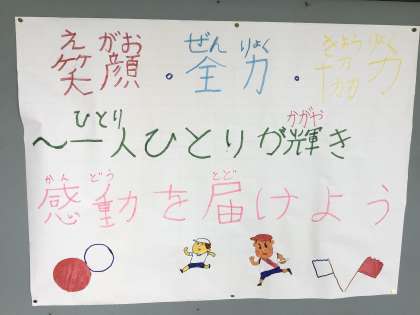 えがお ぜんりょく きょうりょく
笑顔・全力・協力
ひとり かがや
～一人ひとりが輝き
かんどう とど
感動を届けよう